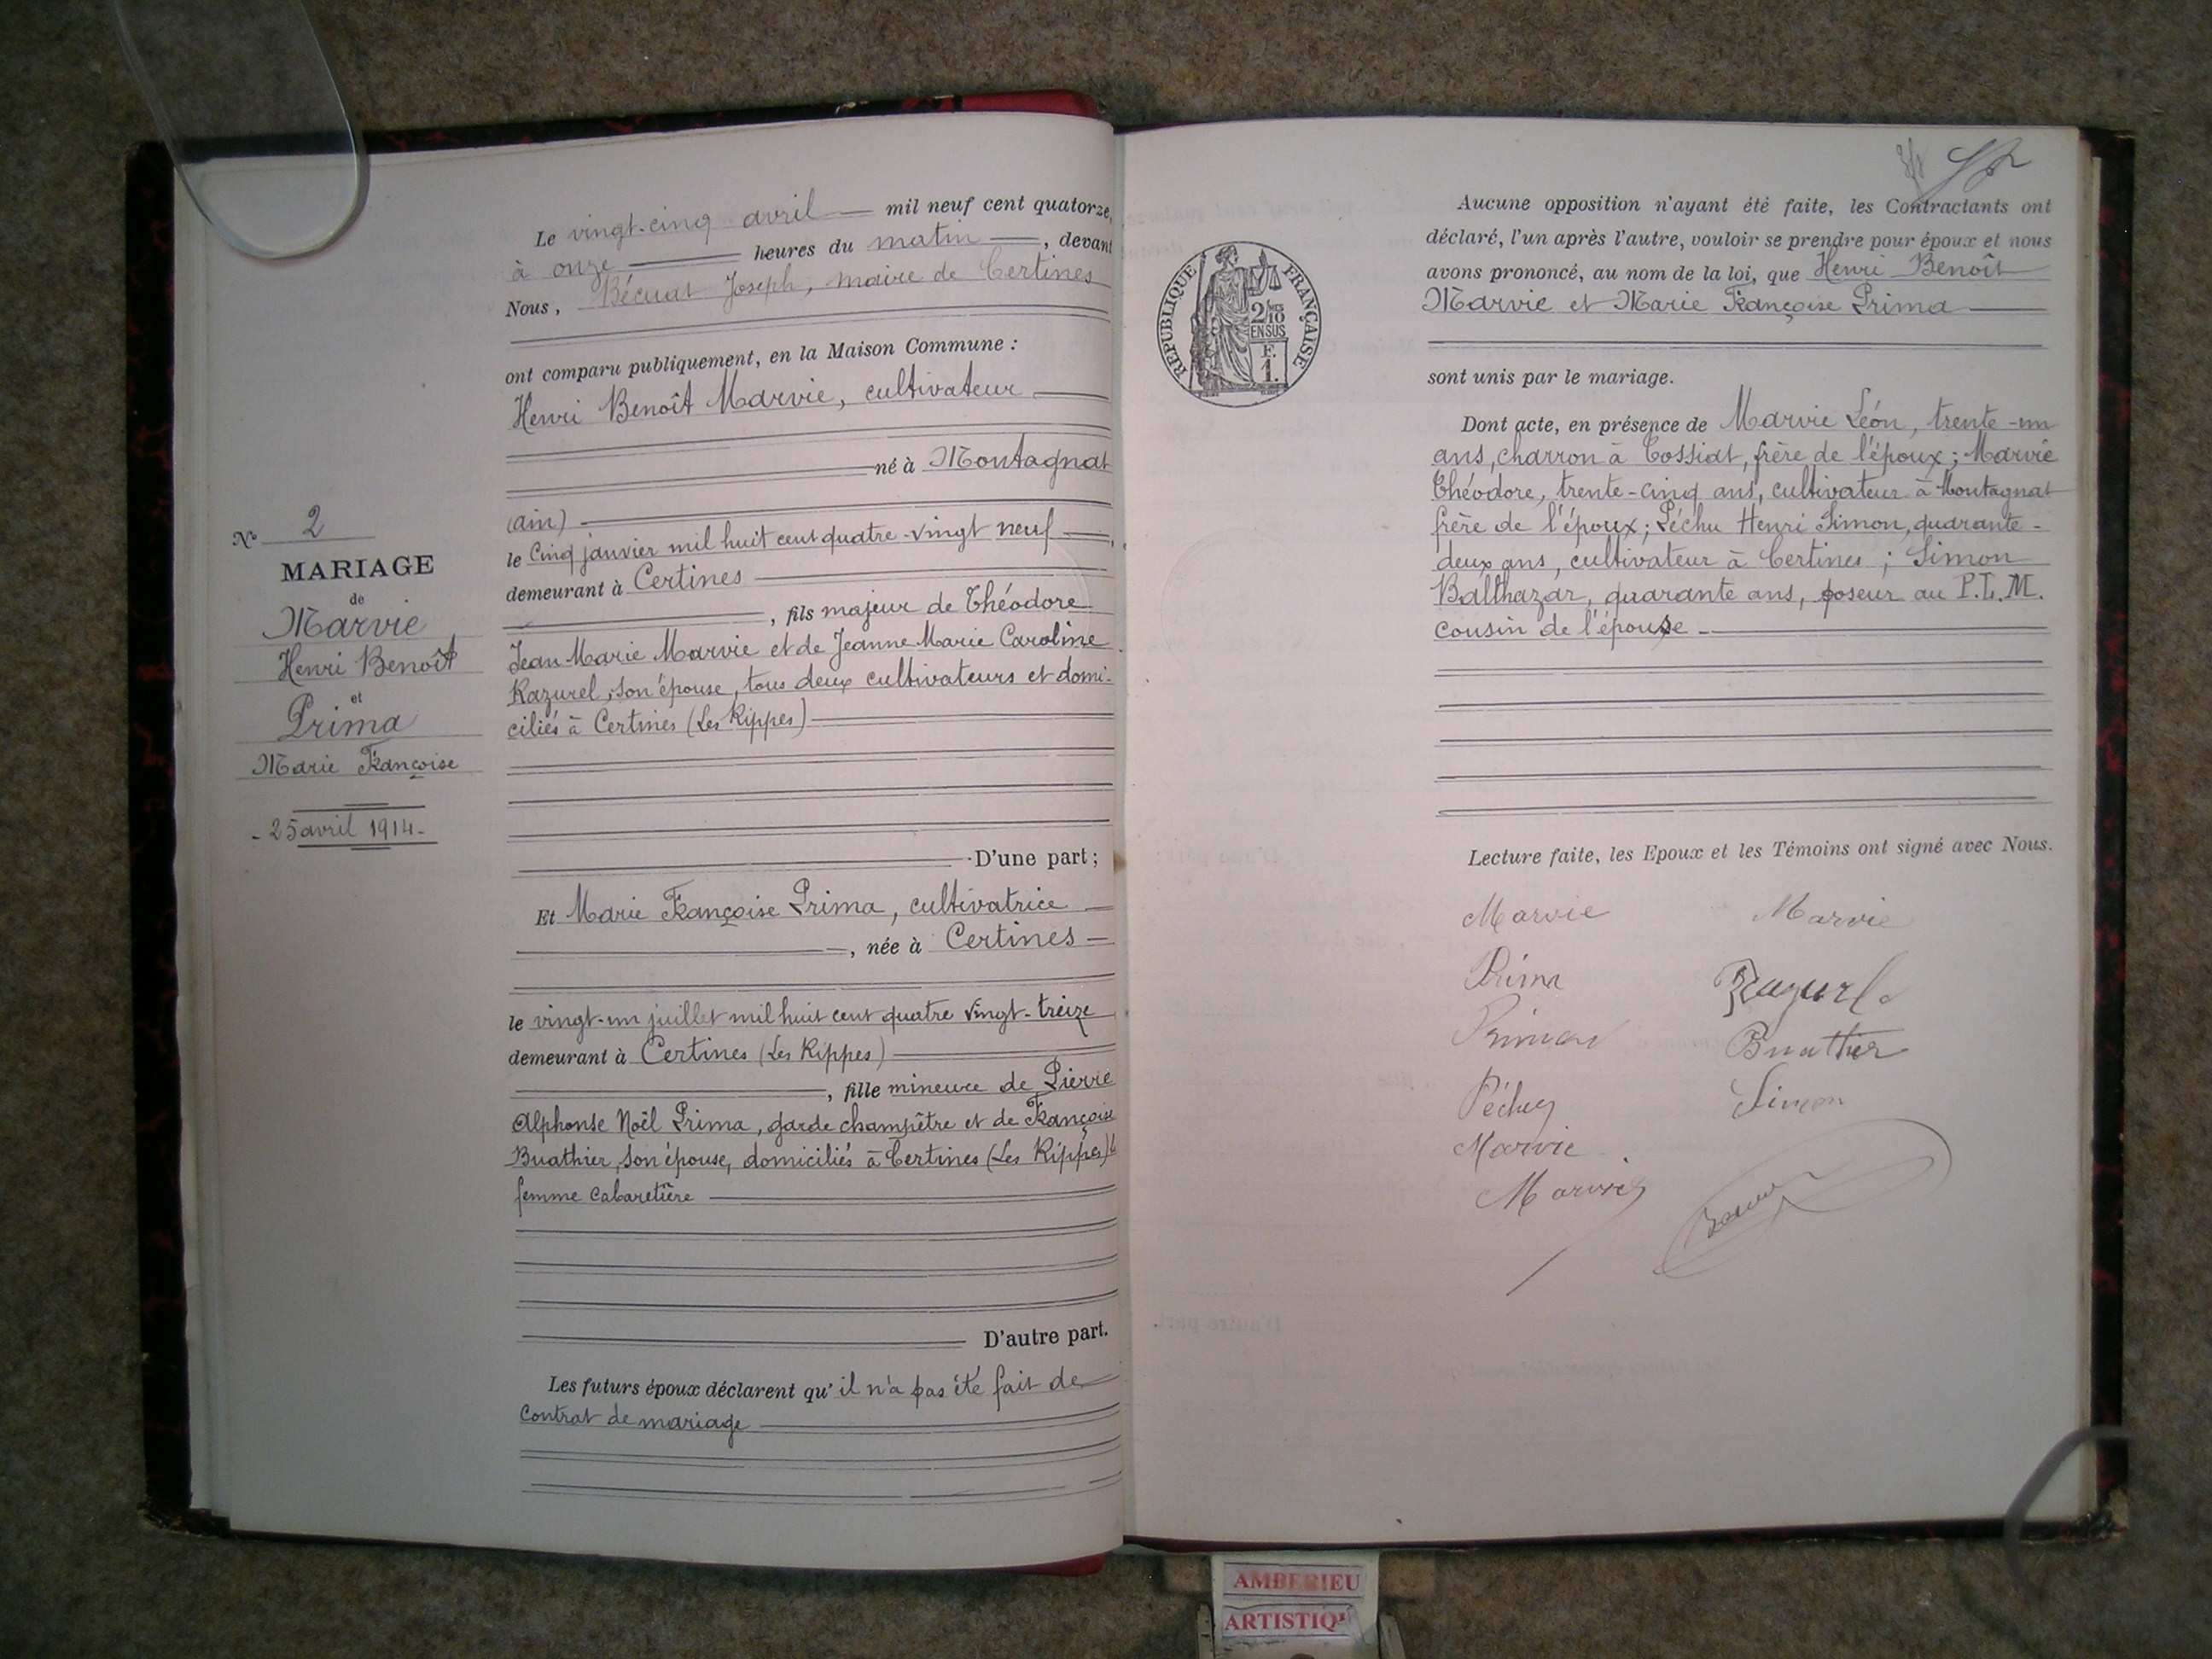 N° 2
MARIAGE
de
Marvie
Henri Benoît
et
Prima
Marie Françoise
- 25 avril 1914 -
Le vingt-cinq avril mil neuf cent quatorze,
à onze heures du matin, devant
Nous, Bécuat Joseph, maire de Certines
ont comparu publiquement, en la Maison Commune :
Henri Benoît Marvie, cultivateur
né à Montagnat
(ain)
le Cinq janvier mil huit cent quatre-vingt neuf,
demeurant à Certines
, fils majeur de Théodore
Jean Marie Marvie et de Jeanne Marie Caroline
Razurel, son épouse, tous deux cultivateurs et domi-
ciliés à Certines (Les Rippes)
D'une part ;
Et Marie Françoise Prima, cultivatrice
, née à Certines
le vingt-un juillet mil huit cent quatre vingt-treize
demeurant à Certines (Les Rippes)
, fille mineure de Pierre
Alphonse Noël Prima, garde champêtre et de Françoise
Buathier, son épouse, domiciliés à Certines (Les Rippes)
femme cabaretière
D'autre part.
Les futurs époux déclarent qu'il n'a pas été fait de
Contrat de mariage
REPUBLIQUE FRANÇAISE
2/10
EN SUS
F.
1.
Aucune opposition n'ayant été faite, les Contractants ont
déclaré, l'un après l'autre, vouloir se prendre pour époux et nous
avons prononcé, au nom de la loi, que Henri Benoît
Marvie et Marie Françoise Prima
sont unis par le mariage.
Dont acte, en présence de Marvie Léon, trente-un
ans, charron à Tossiat, frère de l'époux ; Marvie
Théodore, trente-cinq ans, cultivateur à Montagnat
frère de l'époux ; Péchu Henri Simon, quarante-
deux ans, cultivateur à Certines ; Simon
Balthazar, quarante ans, poseur au P.L.M.
cousin de l'épouse
Lecture faite, les Epoux et les Témoins ont signé avec Nous.
Marvie Marvie
Prima Razurel
Prima Buathier
Péchu Simon
Marvie
Marvie
AMBERIEU
ARTISTIQU